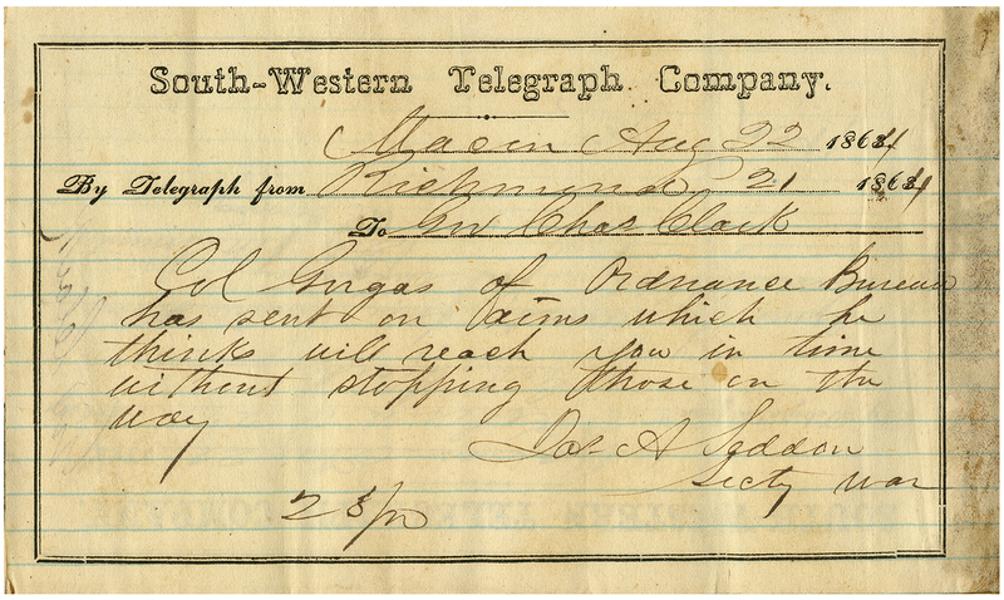 South-Western Telegraph Company.
Macon Aug 22 1864
By Telegraph from Richmond 21 1864
To Gov Chas Clark
Col Gorgas of Ordnance Bureau
has sent on arms which he
thinks will reach you in time
without stopping those on the
way
Jas A Seddon
Secty War